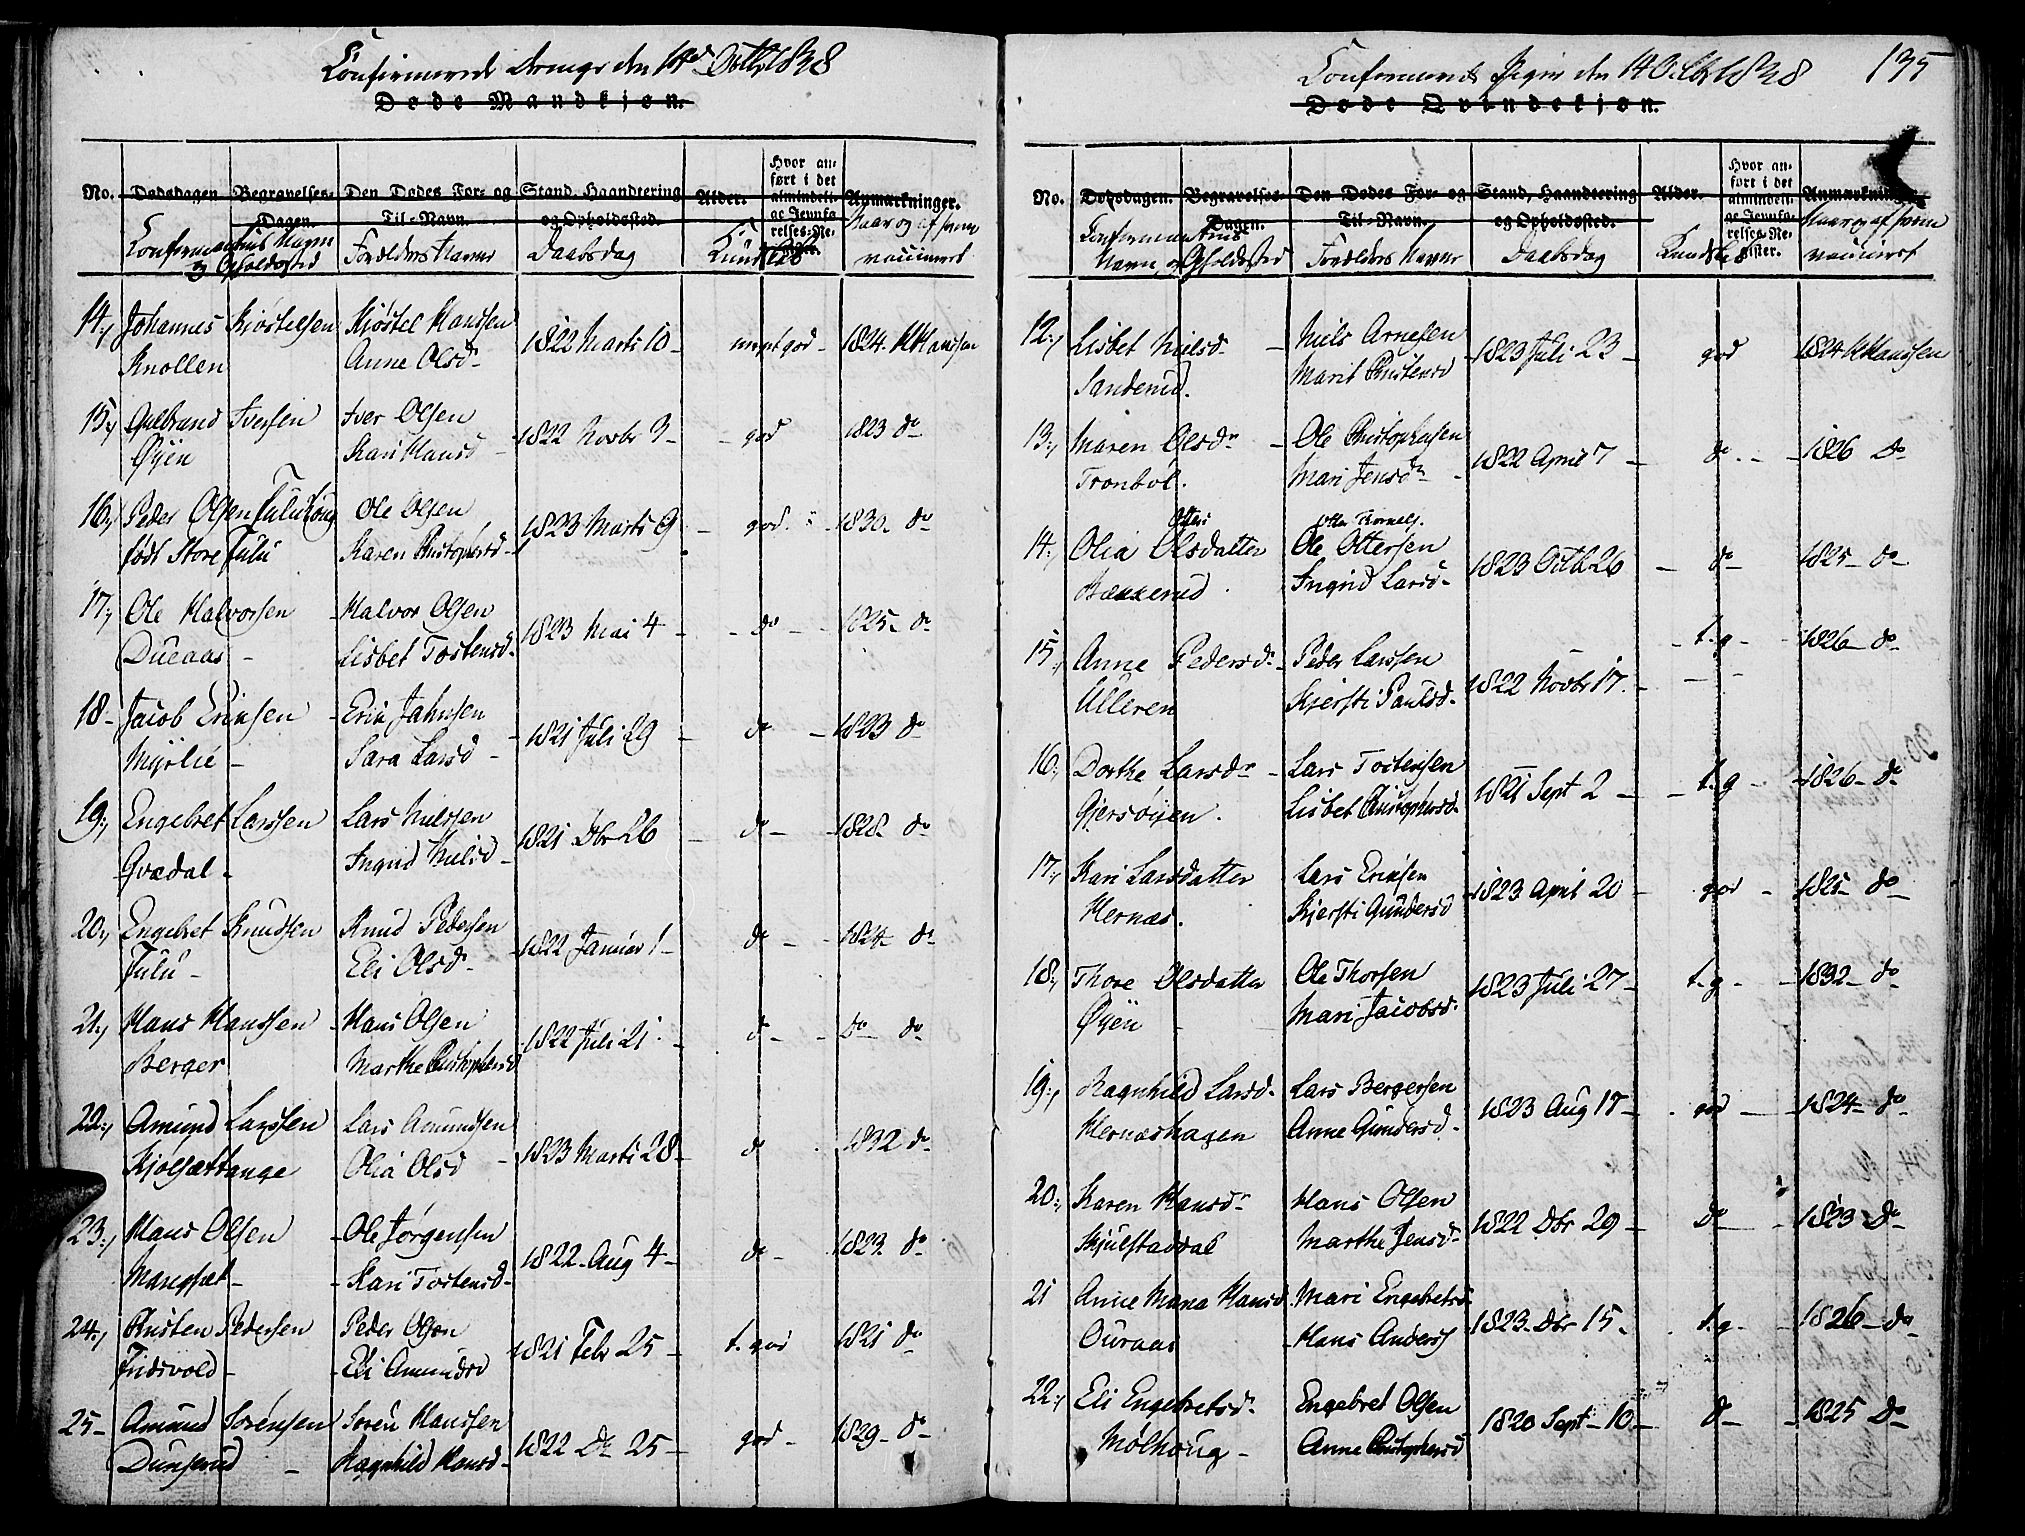 Confirmerede Drenge den 14de Octbr 1838
Døde Mandkjøn.
No. Dødsdagen Begravelses-Dagen. Den Dødes For- og Til-Navn. Stand, Haandtering og Opholdssted. Alder. Hvor anført i det almindelige Jevnførelses-Register. Anmærkninger.
Confirmantens Navn og Opholdssted Forældres Navne Daabsdag Kundskab Naar og af hvem vaccineret
14., Johannes Kjøstelsen Kjøstel Hanssen 1822 Marts 10 - meget god - 1824 HHanssen
Knollen Anne Olsd
15., Gulbrand Iversen Iver Olsen 1822 Novbr 3 - god 1823 do
Øyen Kari Hansd
16., Peder Olsen Ole Olsen 1823 Marts 9 - god - 1830 do
født Store Tulu Karen Christophersd
17., Ole Halvorsen Halvor Olsen 1823 Mai 4 - do - 1825 do
Dueaas Lisbet Tostensd
18 - Jacob Eriksen Erik Jahnsen 1821 Juli 29 - do - 1823 do
Myrlie Sara Larsd
19., Engebret Larssen Lars Nielssen 1821 Dbr 26 - do - 1828 do
Qvædal - Ingrid Nielsd
20., Engebret Knudsen Knud Pedersen 1822 Januar 1 - do - 1824 do
Tulu - Eli Olsd
21., Hans Hanssen Hans Olsen 1822 Juli 21 - do - Do do
Berger Marthe Christophersd
22., Amund Larssen Lars Amundsen 1823 Marts 28 - do 1832 do
Kjølsættange Olia Olsd
23., Hans Olsen Ole Jørgensen 1822 Aug 4 - do - 1823 do
Mangsæt - Kari Tostensd
24., Christen Pedersen Peder Olsen 1821 Febr 25 - t. god 1821 do
Eidsvold - Eli Amundsd
25 - Amund Sørensen Soren Hanssen 1822 Do 25 - god - 1829 do
Dunserud - Ragnhild Hansd
Confirmerede Piger den 14 Octbr 1838 135
Døde Qvindekjøn.
No. Dødsdagen. Begravelses-Dagen. Den Dødes For- og Til-Navn. Stand, Haandtering og Opholdssted. Alder. Hvor anført i det almindelige Jevnførelses-Register. Anmærkninger.
Confirmantens Navn og Opholdssted Forældres Navne Daabsdag Kundskab Naar og af hvem vaccineret
12., Lisbet Nielsd Niels Arnesen 1823 Juli 23 - god 1824 HHanssen
Sanderud. Marit Christensd
13., Maren Olsdr Ole Christophersen 1822 April 7 - do - 1826 Do
Tronbøl. Mari Jensdr
Otters Otter
14., Olia Olsdatter Ole Ottersen 1823 Octb 26 - do - 1825 do
Bækkerud. Ingrid Larsd
15., Anne Pedersdr Peder Larssen 1822 Novbr 17. - t.g - 1826 do
Ulleren Kjersti Paulsd
16., Dorthe Larsdr Lars Tostensen 1821 Sept 2 - t.g - 1826 do
Gjersøyen. Lisbet Christophersd
17., Kari Larsdatter Lars Eriksen 1823 April 20 - god - 1825 do
Hernæs. Kjersti Gundersd
18., Thore Olsdatter Ole Thorsen 1823 Juli 27 - t.g - 1832 do
Øyen Mari Jacobsd
19., Ragnhild Larsd. Lars Bergersen 1823 Aug 17 - god - 1824 do
Hernæshagen Anne Gundersd
20., Karen Hansdr Hans Olsen 1822 Dbr 29 - Do - 1823 Do
Skjulstaddal Marthe Jensdr
21 Anne Maria Hansd Mari Engebretsd 1823 Dbr 15 - t.g - 1826 do
Ouraas Hans Anderss
22., Eli Engebretsd Engebret Olsen 1820 Sept 10 - do - 1825 Do
Mølhoug - Anne Christophersd